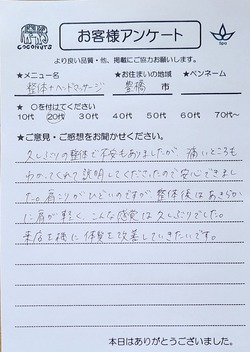 COCONUTS
お客様アンケート
spa
より良い品質・他、掲載にご協力お願いします。
★メニュー名 ★お住まいの地域 ★ペンネーム
整体+ヘッドマッサージ 豊橋 市
★ ○を付けてください
10代 20代 30代 40代 50代 60代 70代~
★ご意見・ご感想をお聞かせください。
久しぶりの整体で不安もありましたが 痛いところも
わかってくれて説明してくださったので安心できまし
た。肩こりがひどいのですが、整体後はあきらか
に肩が軽く、こんな感覚は久しぶりでした。
来店を機に体質を改善していきたいです。
本日はありがとうございました。